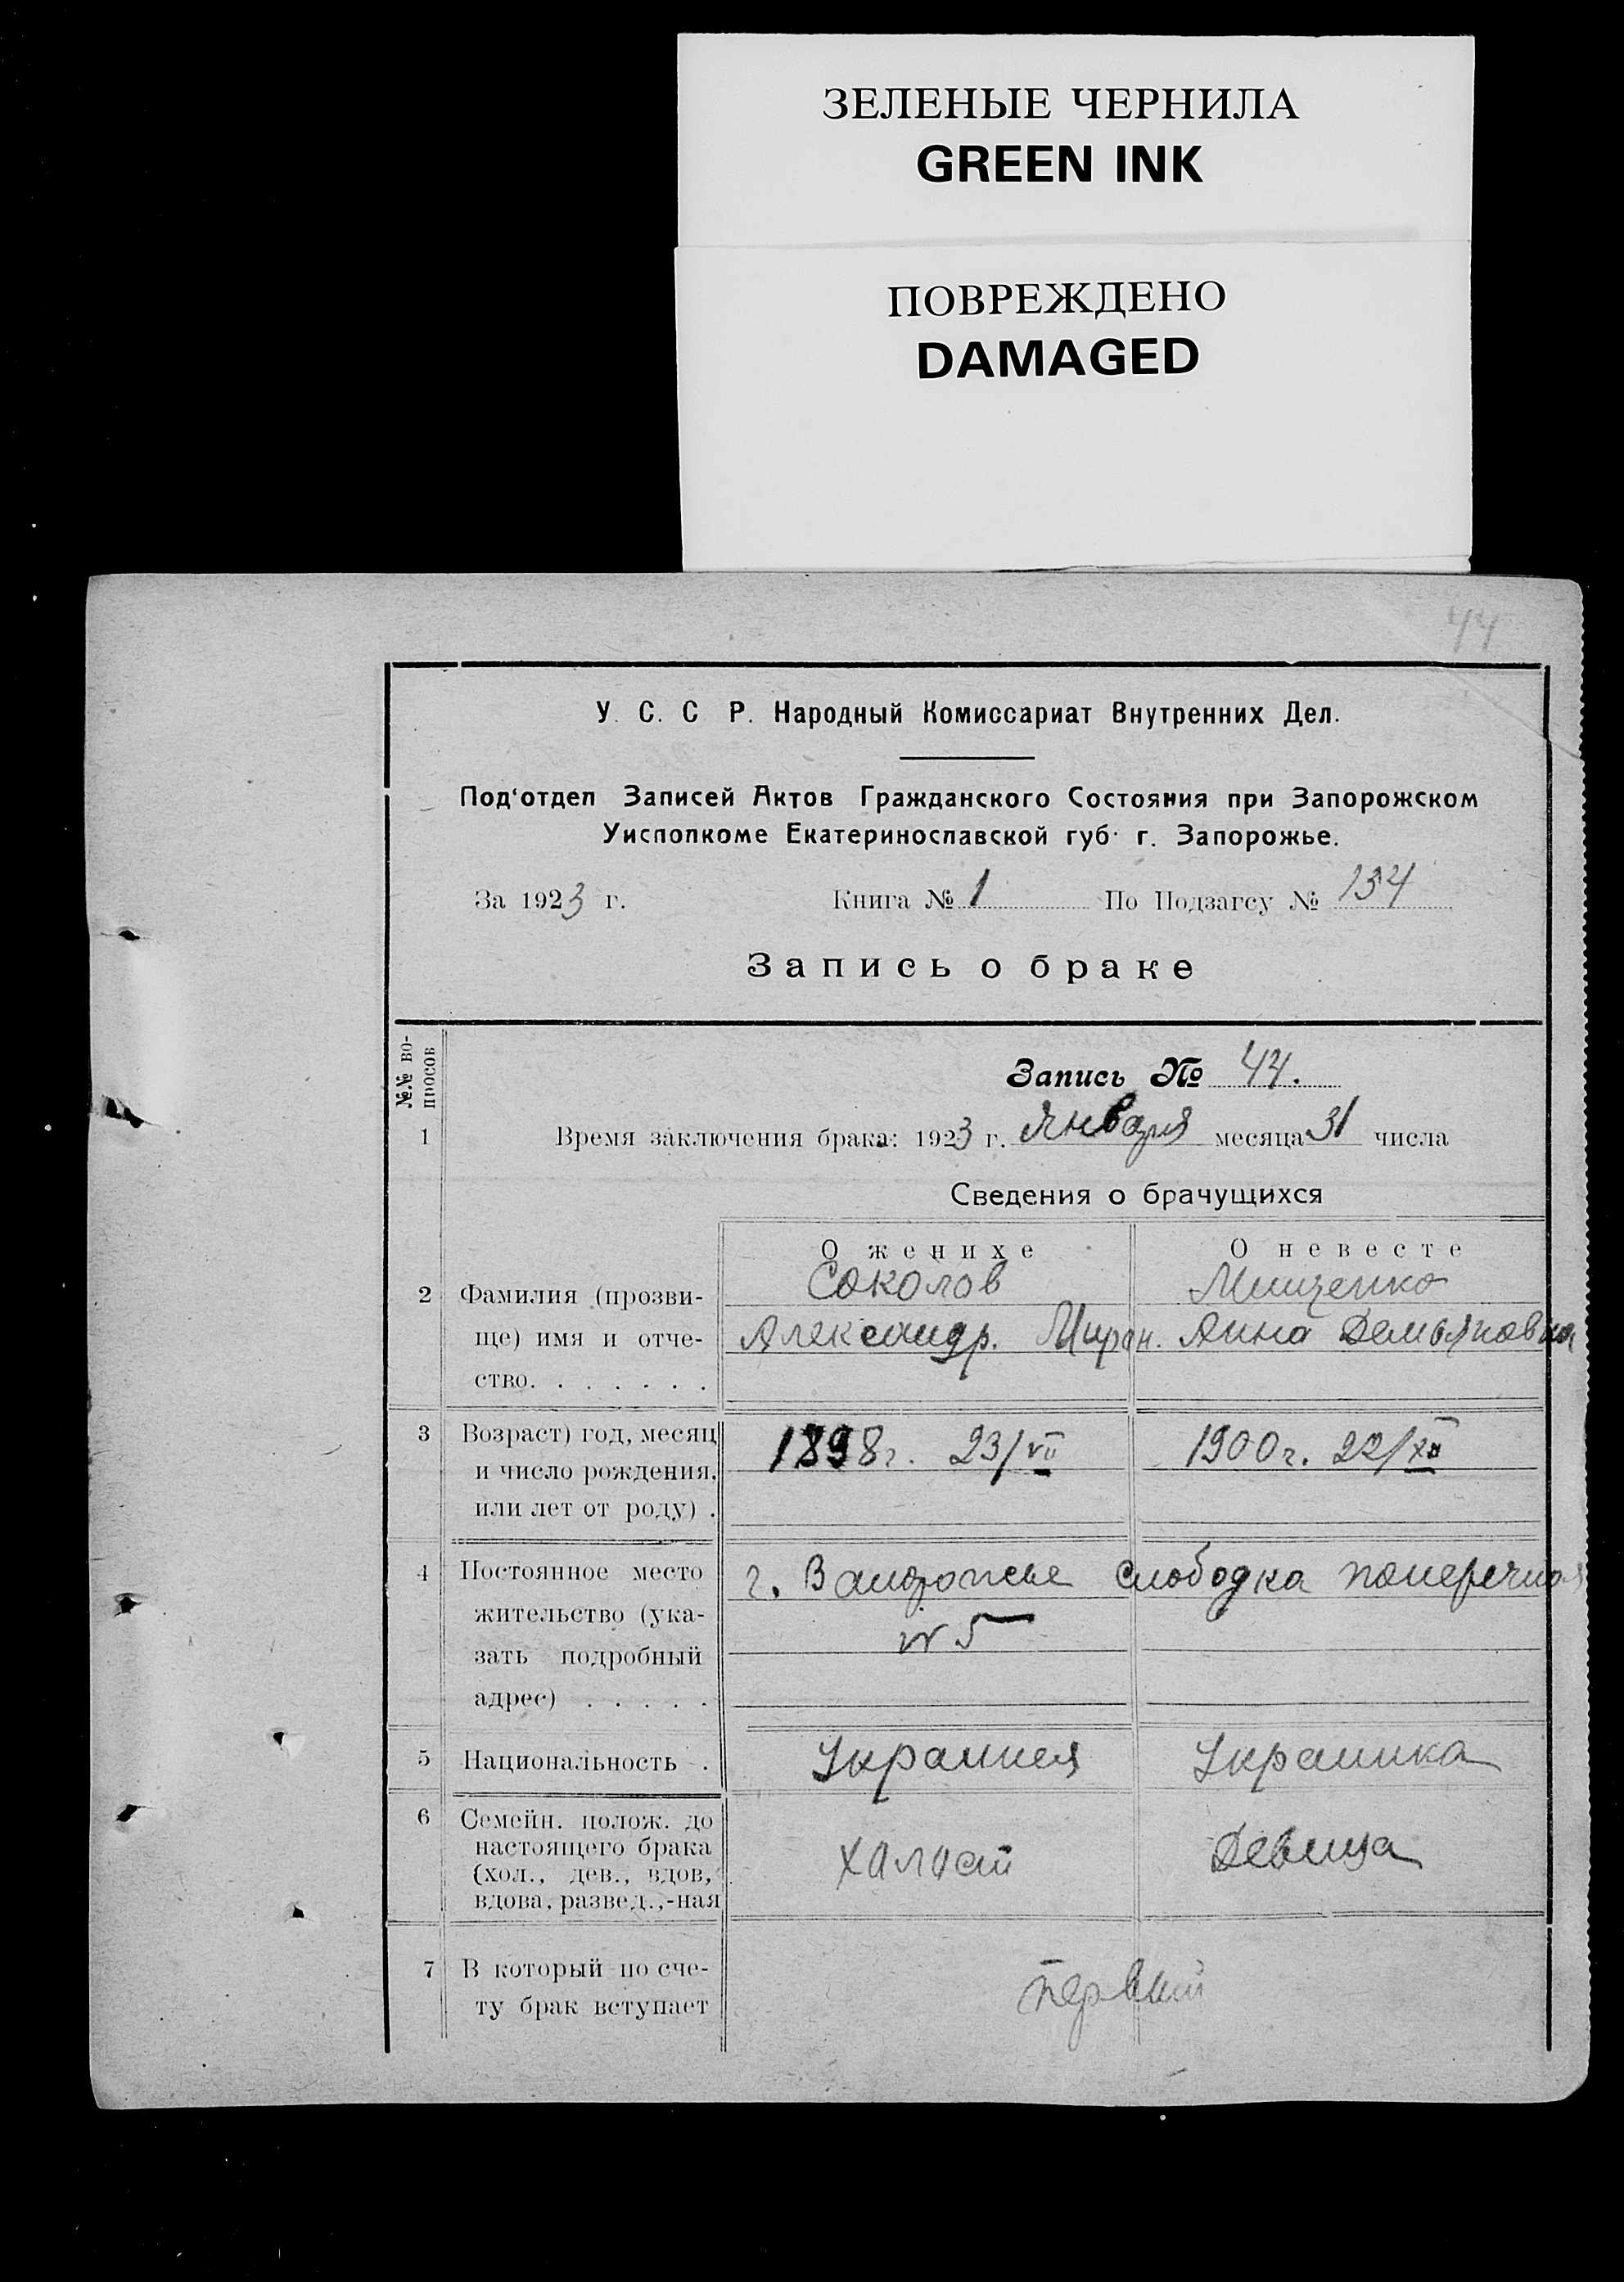 ЗЕЛЕНЫЕ ЧЕРНИЛА
GREEN INK
ПОВРЕЖДЕНО
DAMAGED
44
У. С. С Р. Народный Комиссариат Внутренних Дел.
Под'отдел Записей Актов Гражданского Состояния при Запорожском
Уисполкоме Екатеринославской губ. г. Запорожье.
За 1923 г. Книга № 1 По Подзагсу № 134
Запись о браке
№№ во-
просов
Запись № 44.
1 Время заключения брака: 1923 г. Января месяца 31 числа
Сведения о брачущихся
О женихе О невесте
2 Фамилия (прозви- Соколов Мищенко
ще) имя и отче- Александр. Мирон. Анна Демьяновна
ство. . . . . . .
3 Возраст) год, месяц 1898г. 23/VII 1900г. 22/XII
и число рождения.
или лет от роду) .
4 Постоянное место г. Запорожье Слободка Поперечная
жительство (ука- № 5
зать подробный
адрес) . . . . .
5 Национальность . Украинец Украинка
6 Семейн. полож. до
настоящего брака
(хол., дев., вдов, халост Девица
вдова, развед.,-ная
7 В который по сче- первый
ту брак вступает